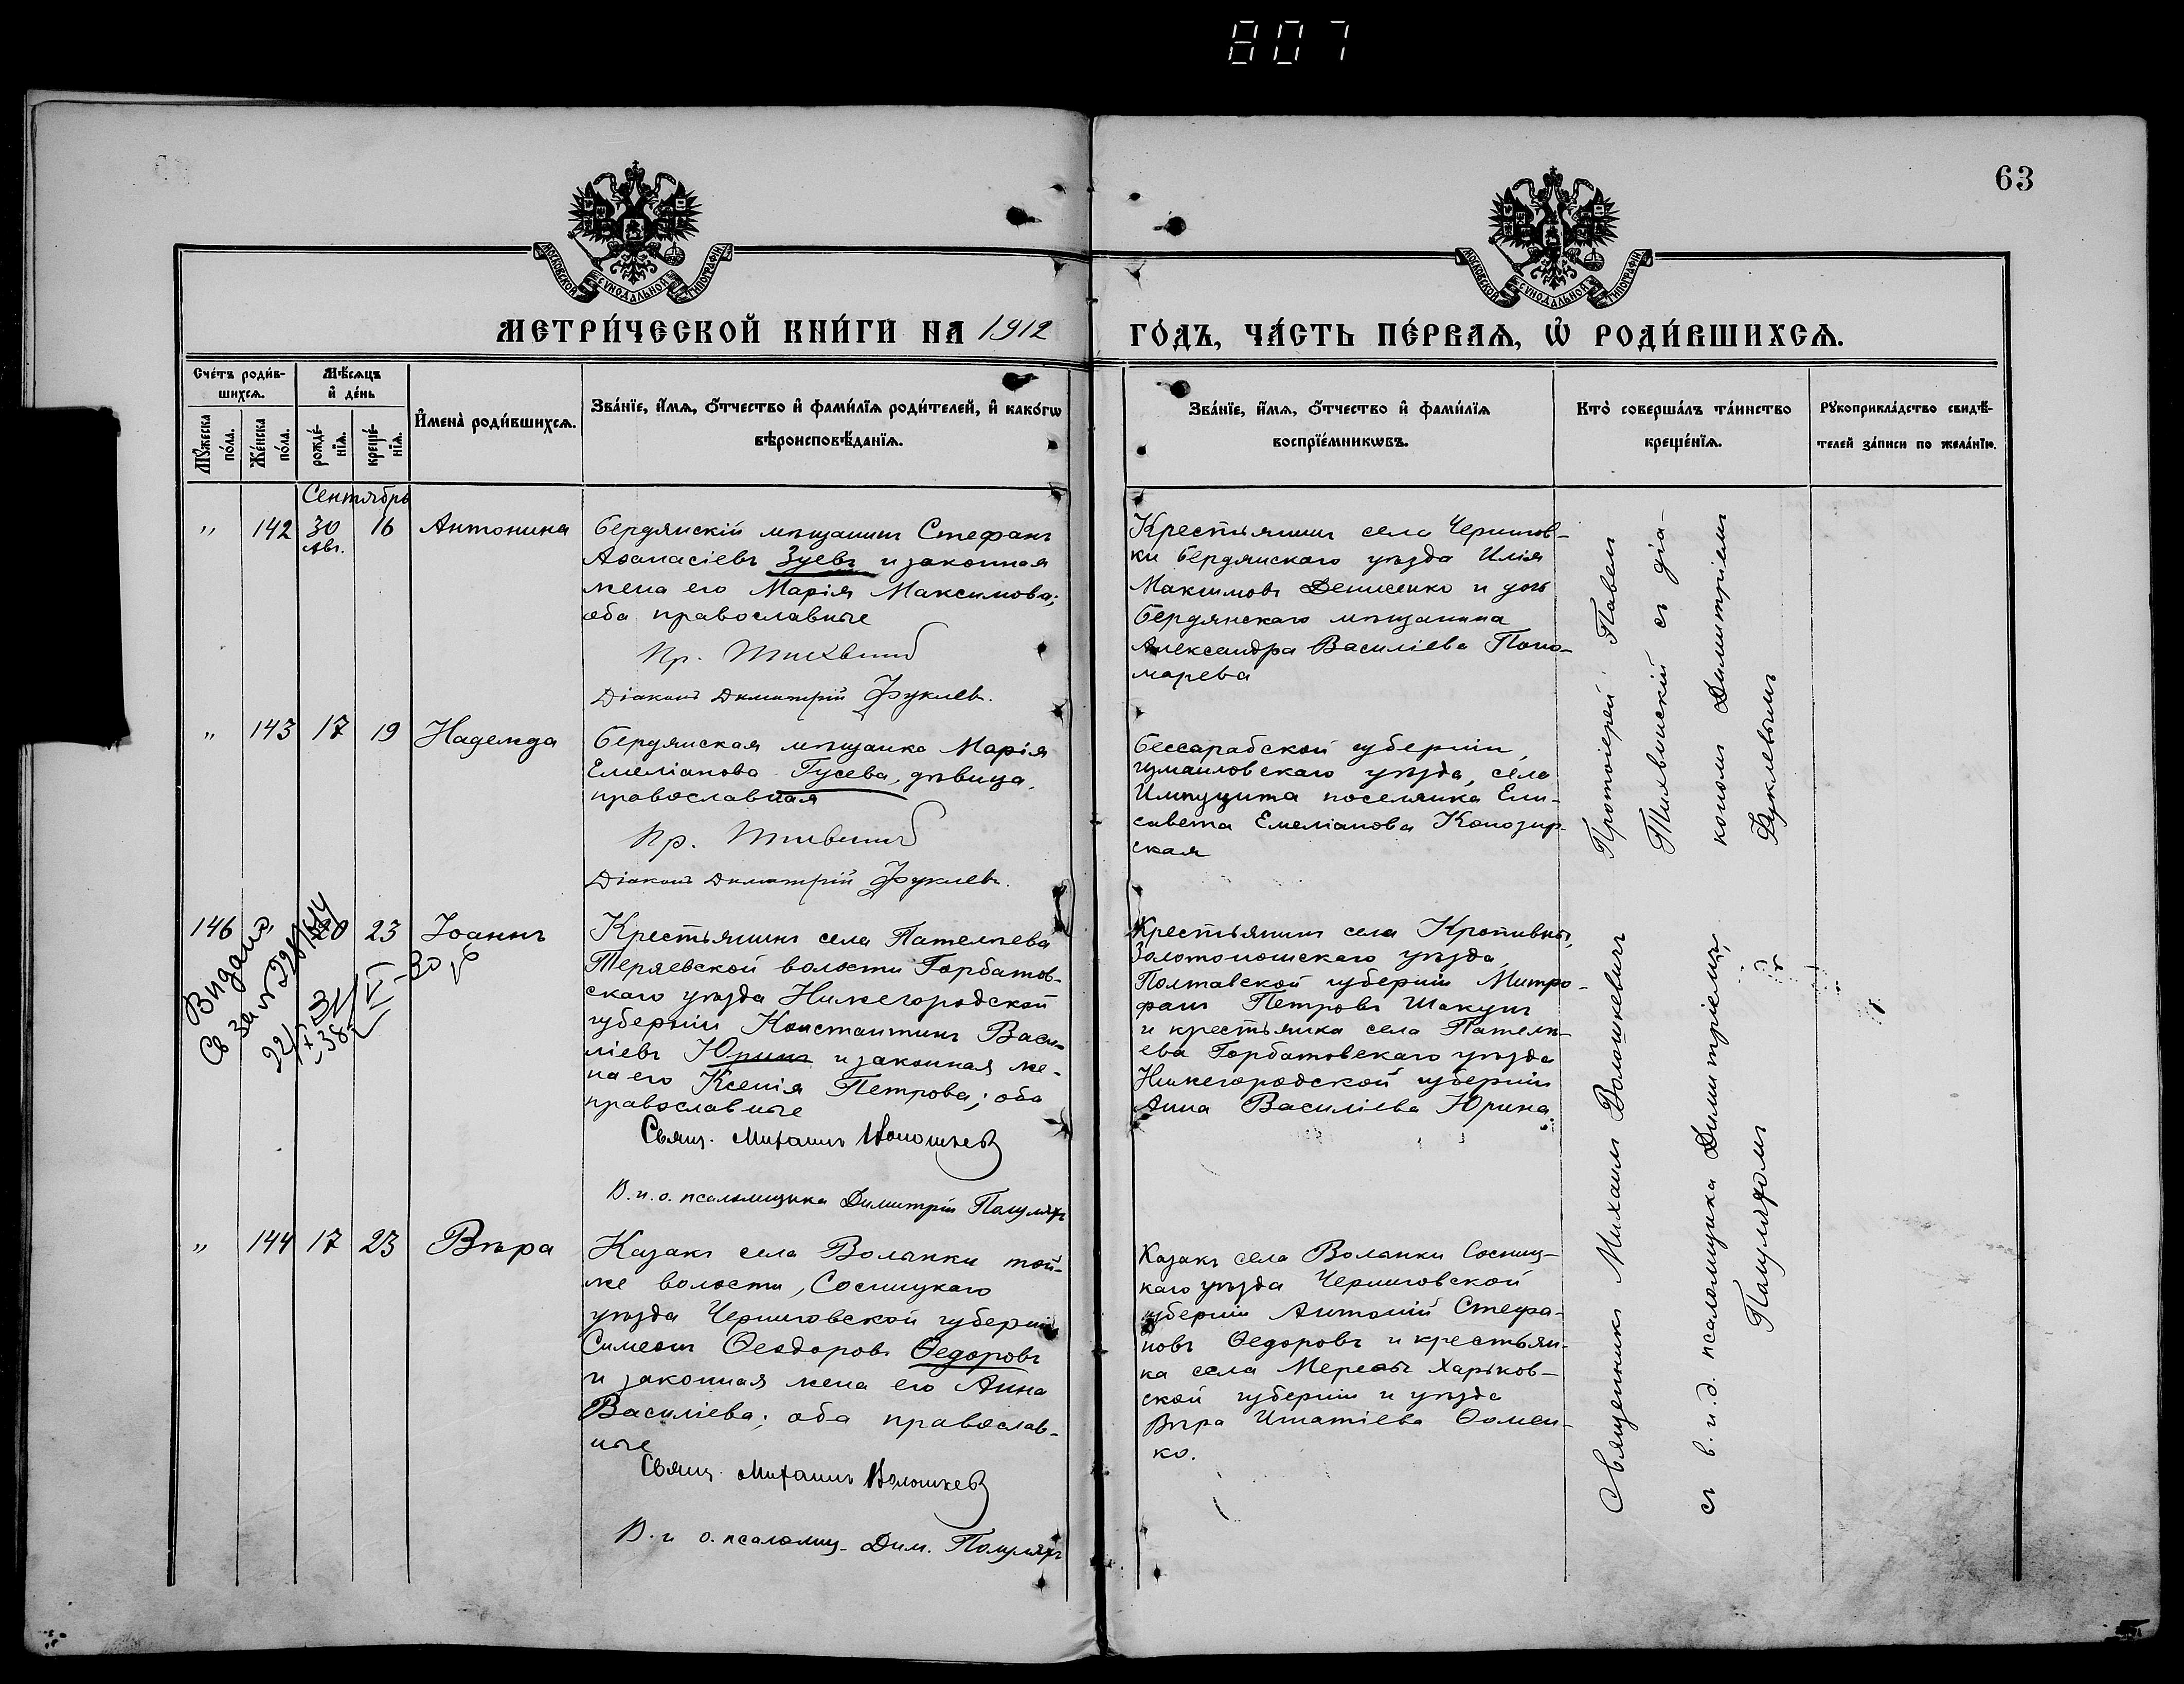 807
63
МОСКОВСКОЙ СѴНОДАЛЬНОЙ ТИПОГРАФІИ
МОСКОВСКОЙ СѴНОДАЛЬНОЙ ТИПОГРАФІИ
МЕТРИ́ЧЕСКОЙ КНИ́ГИ НА 1912
ГО́ДЪ, ЧА́СТЬ ПЕ́РВАѦ, Ѡ҆ РОДИ́ВШИХСѦ.
Сче́тъ роди́в-
шихсѧ.
Мѣ́сѧцъ
и҆ де́нь
Мꙋ́жеска
по́ла.
Же́нска
по́ла.
рожде́-
нїѧ.
креще́-
нїѧ.
И҆мена̀ роди́вшихсѧ.
Зва́нїе, и҆́мѧ, ѻ҆́тчество и҆ фами́лїѧ роди́телей, и҆ како́гѡ
вѣроисповѣ́данїѧ.
Зва́нїе, и҆́мѧ, ѻ҆́тчество и҆ фами́лїѧ
воспрїе́мникѡвъ.
Кто̀ соверша́лъ та́инство
креще́нїѧ.
Рꙋкоприкла́дство свидѣ́-
телей за́писи по жела́нїю.
Сентябрь
" 142 30 16 Антонина
Авг.
Бердянскій мѣщанинъ Стефанъ
Аѳанасіевъ Зуевъ и законная
жена его Марія Максимова;
оба православные
Пр. Тихвинс
Діаконъ Димитрій Фуклев.
Крестьянинъ села Чернигов-
ки Бердянскаго уѣзда Илія
Максимовъ Денисенко и дочь
Бердянскаго мѣщанина
Александра Василіева Поно-
марева
Протоіерей Павелъ
Тихвинскій съ діа-
кономъ Димитріемъ
Фуклевымъ
" 143 17 19 Надежда
Бердянская мѣщанка Марія
Емеліанова Гусева, дѣвица,
православная
Пр. Тихвинс
Діаконъ Димитрій Фуклевъ.
Бессарабской губерніи,
Измаиловскаго уѣзда, села
Импуцита поселянка Ели-
савета Емеліанова
ская
146 20 23 Іоаннъ
Видано
Св за №
Крестьянинъ села
волости Горбатов-
скаго уѣзда Нижегородской
губерніи Константинъ Васи-
ліевъ Юринъ и законная же-
на его Ксенія Петрова; оба
православные
Свящ. Михаилъ Волошкев
В. и. о. псаломщика Димитрій
Крестьянинъ села Кропивны,
Золотоношскаго уѣзда,
Полтавской губерніи Митро-
фанъ Петровъ Шакунъ
и крестьянка села
ева Горбатовскаго уѣзда
Нижегородской губерніи
Анна Василіева Юрина.
Священникъ Михаилъ Волошкевичъ
съ в. и. д. псаломщика Димитріемъ
" 144 17 23 Вѣра
Казакъ села Волынки той-
же волости, Сосницкаго
уѣзда Черниговской губерніи
Симеонъ Ѳеодоровъ Ѳедоровъ
и законная жена его Анна
Василіева; оба православ-
ные
Свящ. Михаилъ Волошкев
В. и о. псаломщ. Дим.
Казакъ села Волынки Сосниц-
каго уѣзда Черниговской
губерніи Антоній Стефа-
новъ Ѳедоровъ и крестьян-
ка села Мерефы Харьков-
ской губерніи и уѣзда
Вѣра Игнатіева Ѳомен-
ко.